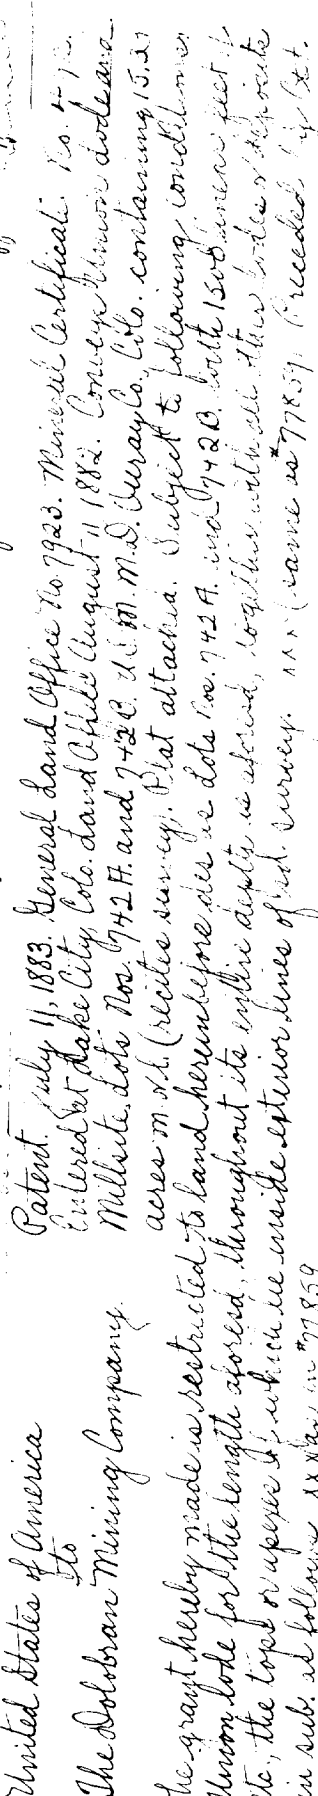 United States of America
to
The Dolobran Mining Company.
Patent. July 11, 1883. General Land Office No. 7923. Mineral Certificate No.
Entered at Lake City, Colo. Land Office August 11, 1882. Conveys Union Lode and
Millsite Lots Nos. 742 A. and 742 B. M. D. Ouray Co., Colo. containing 15.27
acres m or l. (recites survey). Plat attached. Subject to following conditions
the grant hereby made is restricted to land hereinbefore des as Lots Nos. 742 A. and 742 B. with 1500 linear feet of
Union Lode for the length aforesd, throughout its entire depth is aforesd, together with all other lodes or deposits
etc., the tops or apexes of which lie inside exterior lines of sd. survey. (same as #77859. Preceded
in sub. as follows xx in #77859